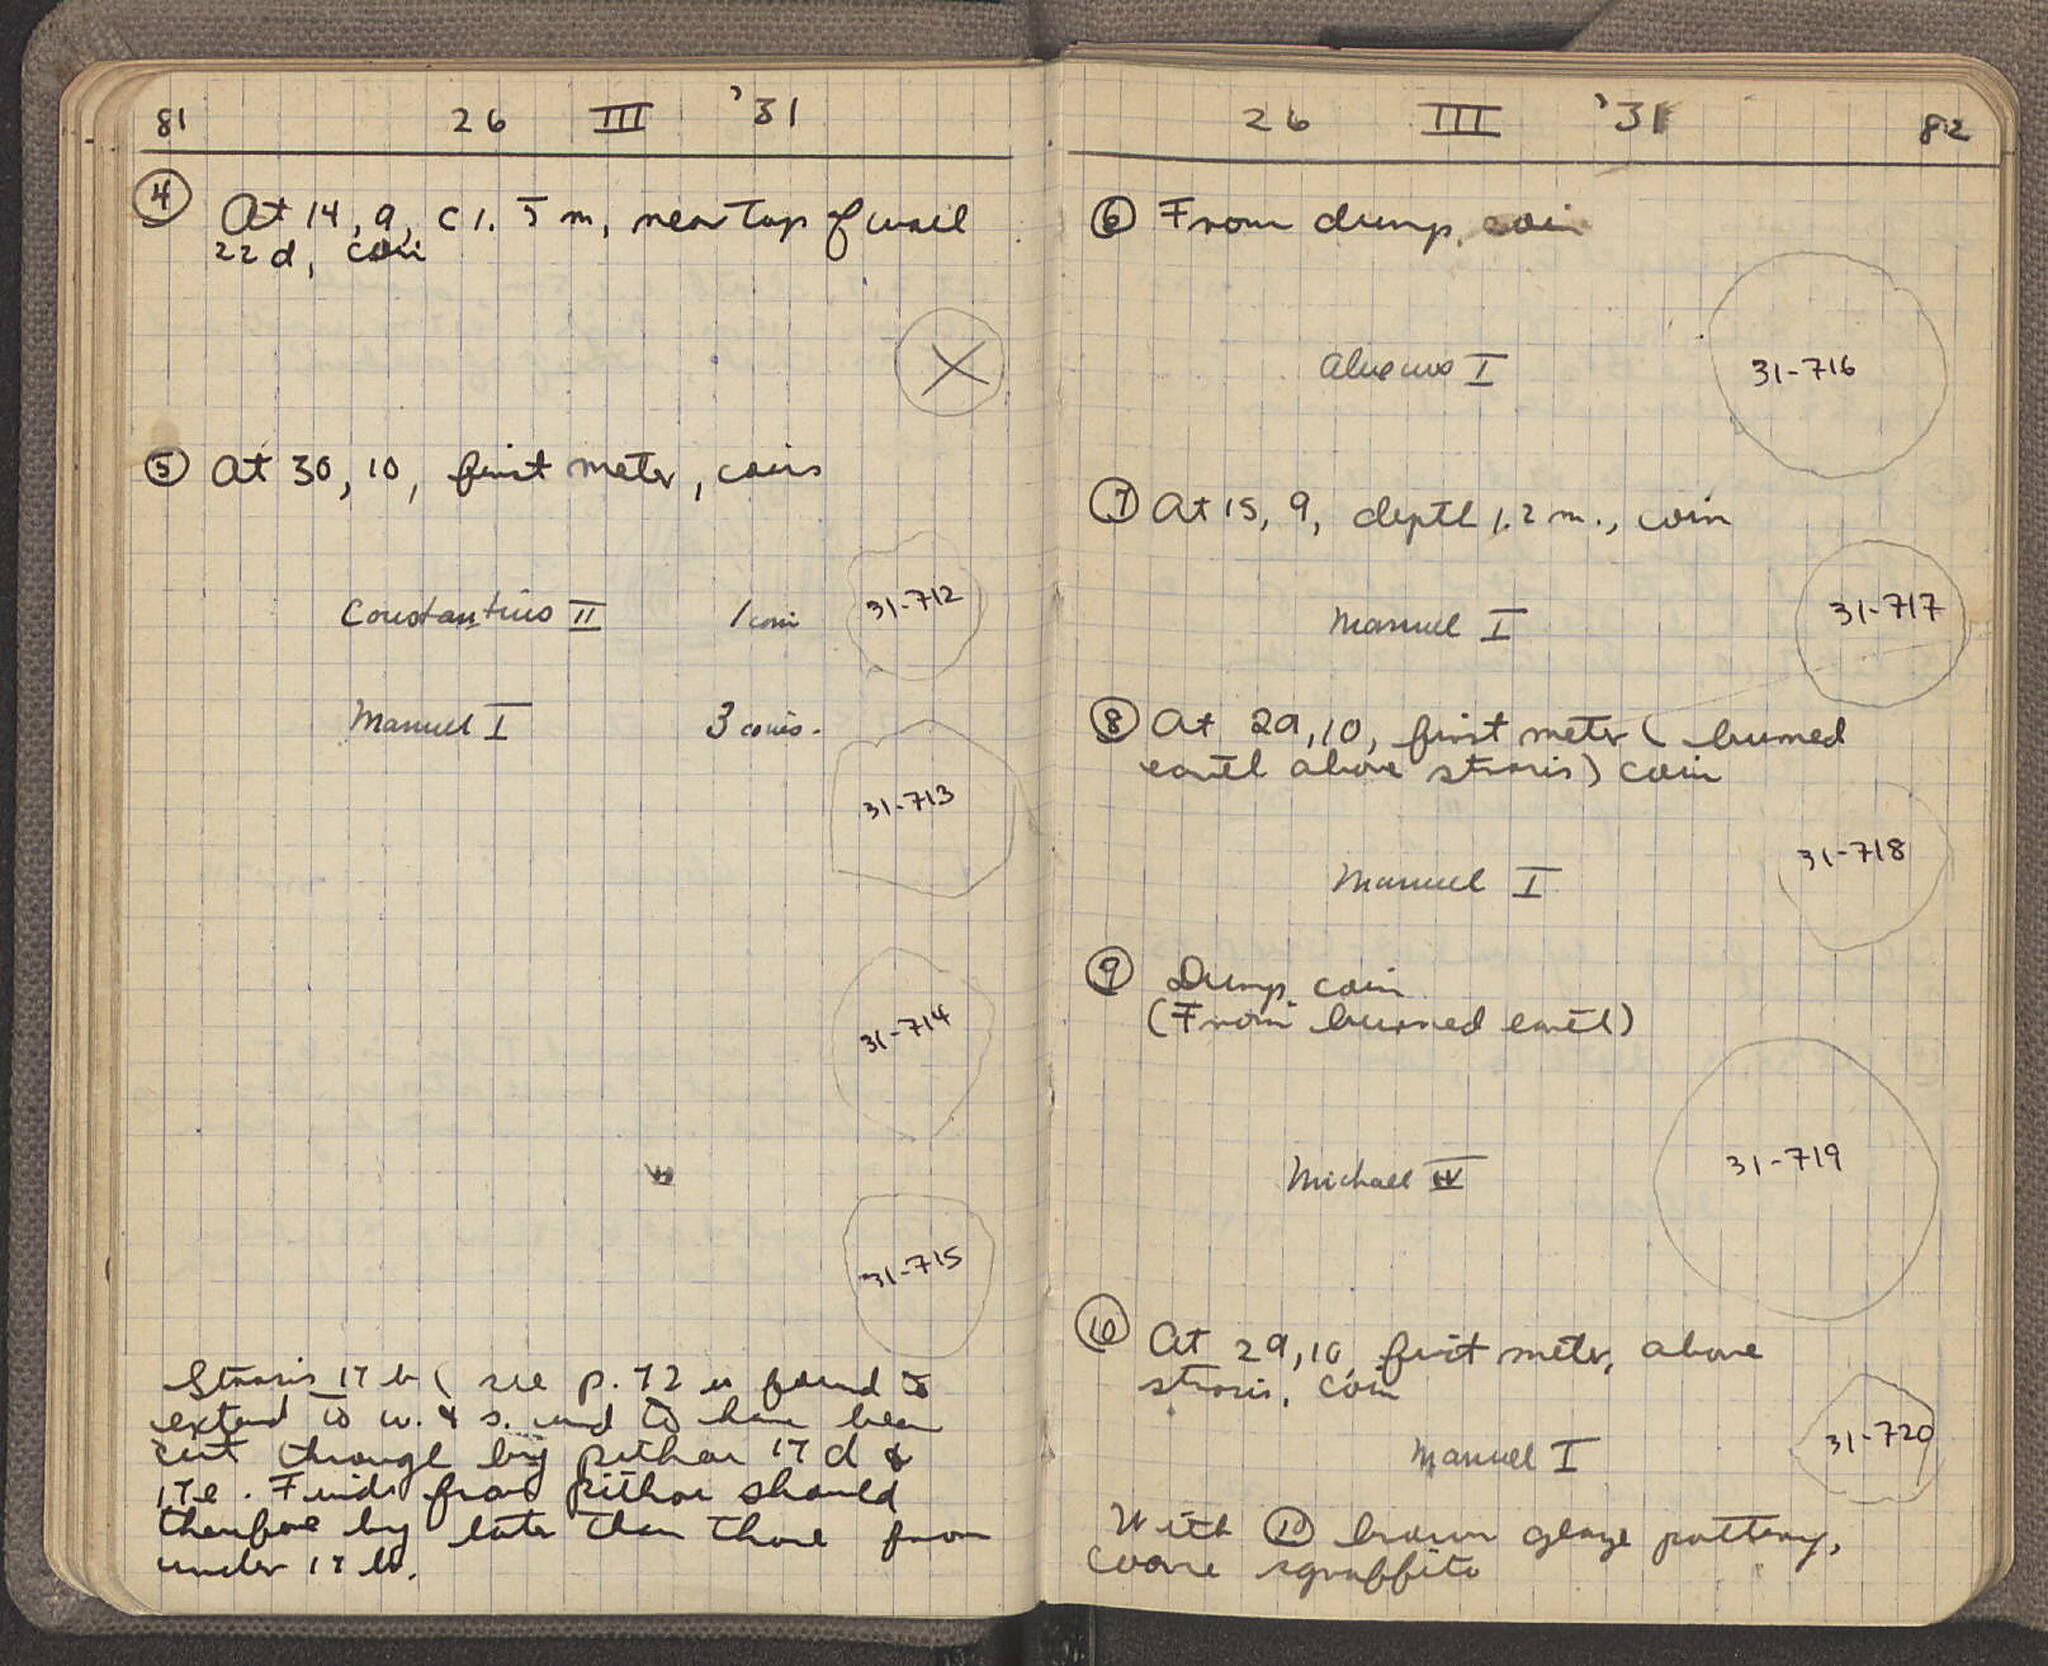 81 26 III '31
④ At 14, 9, c 1.5 m, near top of wall
22 d, coin
⑤ At 30, 10, first meter, coins
Constantius II 1 coin 31-712
Manuel I 3 coins.
31-713
31-714
31-715
Strosis 17 b (see p. 72 is found to
extend to w. & s. and to have been
cut through by pithoi 17 d &
17 e. Finds from pithoi should
therefore by later than those from
under 17 b.
26 III '31 82
⑥ From dump, coin
Alexius I 31-716
⑦ At 15, 9, depth 1.2 m., coin
Manuel I 31-717
⑧ At 29, 10, first meter (burned
earth above strosis) coin
Manuel I 31-718
⑨ Dump. coin
(From burned earth)
Michael IV 31-719
⑩ At 29, 10, first meter, above
strosis, coin
Manuel I 31-720
With ⑩ brown glaze pottery,
coarse sgraffito